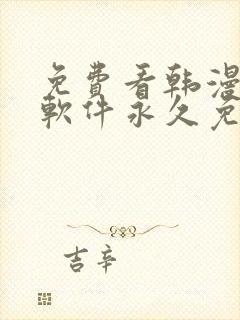 免費看韩漫
軟件永久免
吉辛